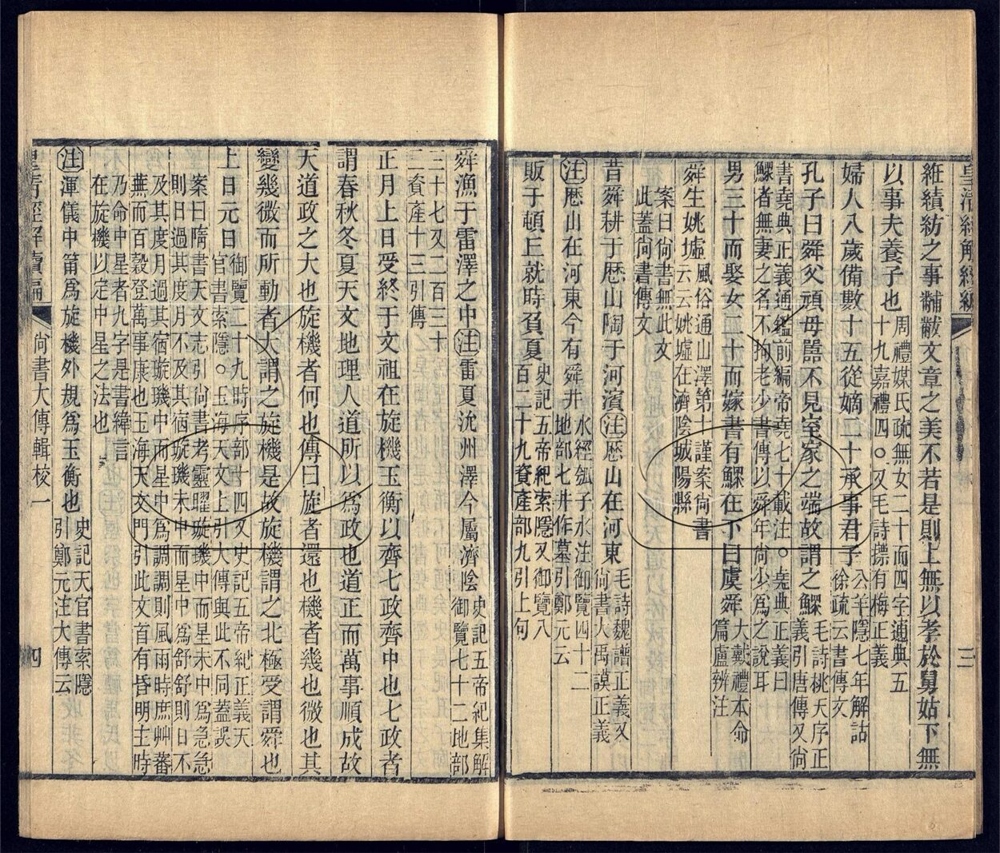 紝績紡之事黼黻文章之美不若是則上無以孝於舅姑下無
以事夫養子也周禮媒氏疏無女二十而四字通典五十九嘉禮四○又毛詩摽有梅正義
婦人八歲備數十五從嫡二十承事君子公羊隱七年解詁徐疏云書傳文
孔子曰舜父頑母嚚不見室家之端故謂之鰥毛詩桃夭序正義引唐傳又尚
書堯典正義通鑑前編帝堯七十載注○堯典正義曰鰥者無妻之名不拘老少書傳以舜年尚少為之說耳
男三十而娶女二十而嫁書有鰥在下曰虞舜大戴禮本命篇盧辨注
舜生姚墟風俗通山澤第十謹案尚書云云姚墟在濟陰城陽縣
案曰尚書無此文此蓋尚書傳文
昔舜耕于歷山陶于河濱注歷山在河東毛詩魏譜正義又尚書大禹謨正義
注歷山在河東今有舜井水經瓠子水注御覽四十二地部七井作墓引鄭元云
販于頓丘就時負夏史記五帝紀索隱又御覽八百二十九資產部九引上句
舜漁于雷澤之中注雷夏沇州澤今屬濟陰史記五帝紀集解御覽七十二地部
三十七又二百三十三資產十三引傳
正月上日受終于文祖在旋機玉衡以齊七政齊中也七政者
謂春秋冬夏天文地理人道所以為政也道正而萬事順成故
天道政之大也旋機者何也傳曰旋者還也機者幾也微也其
變幾微而所動者大謂之旋機是故旋機謂之北極受謂舜也
上日元日御覽二十九時序部十四又史記五帝紀正義天官書索隱○玉海天文上引大傳與此不同蓋誤
案曰隋書天文志引尚書考靈曜璇璣中而星未中為急急則日過其度月不及其宿璇璣未中而星中為舒舒則日不
及其度月過其宿璇璣中而星中為調調則風雨時庶艸蕃蕪而百穀登萬事康也玉海天文門引此文首有昏明主時
乃命中星者九字是書緯言在旋機以定中星之法也
注渾儀中筩為旋機外規為玉衡也史記天官書索隱引鄭元注大傳云
尚書大傳輯校一
四